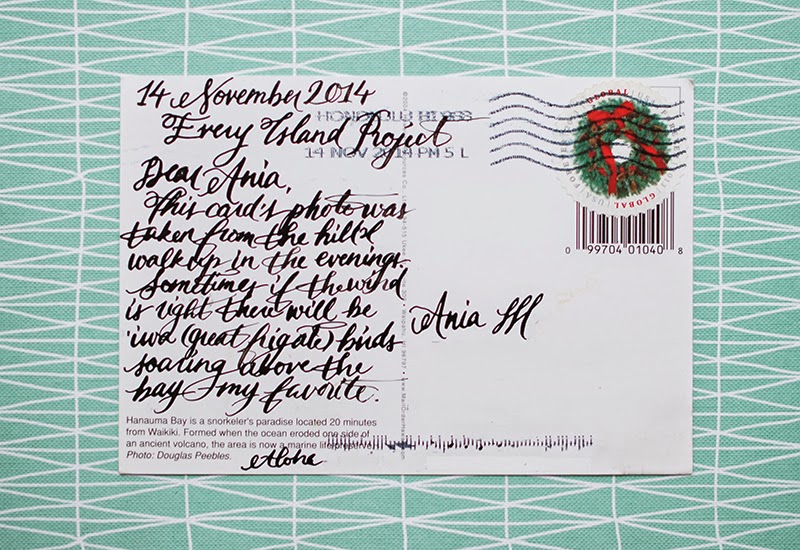 14 November 2014
Every Island Project
Dear Ania,
This card's photo was
taken from the hill I
walk up in the evenings.
Sometimes if the wind
is right there will be
'iwa (great frigate) birds
soaring above the
bay - my favorite.
Hanauma Bay is a snorkeler's paradise located 20 minutes
from Waikiki. Formed when the ocean eroded one side of
an ancient volcano, the area is now a marine life preserve.
Photo: Douglas Peebles.
Aloha
HONOLULU HI
14 NOV 2014 PM 5 L
GLOBAL USA
GLOBAL USA
0 99704 01040 8
Ania